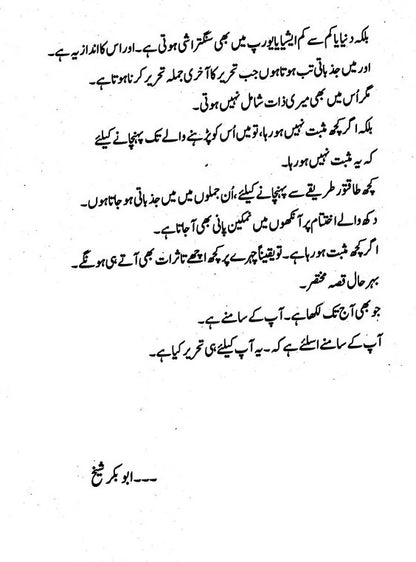 بلکہ دنیا یا کم سے کم ایشیا یا یورپ میں بھی سنگتراشی ہوتی ہے۔ اور اس کا انداز یہ ہے۔
اور میں جذباتی تب ہوتا ہوں جب تحریر کا آخری جملہ تحریر کرنا ہوتا ہے۔
مگر اُس میں بھی میری ذات شامل نہیں ہوتی۔
بلکہ اگر کچھ مثبت نہیں ہو رہا، تو میں اُس کو پڑھنے والے تک پہنچانے کیلئے
کہ یہ مثبت نہیں ہو رہا۔
کچھ طاقتور طریقے سے پہنچانے کیلئے، اُن جملوں میں میں جذباتی ہو جاتا ہوں۔
دکھ والے اختتام پر آنکھوں میں نمکین پانی بھی آ جاتا ہے۔
اگر کچھ مثبت ہو رہا ہے۔ تو یقیناً چہرے پر کچھ اچھے تاثرات بھی آتے ہی ہونگے۔
بہرحال قصہ مختصر۔
جو بھی آج تک لکھا ہے۔ آپ کے سامنے ہے۔
آپ کے سامنے اسلئے ہے کہ۔ یہ آپ کیلئے ہی تحریر کیا ہے۔
۔۔۔ ابوبکر شیخ